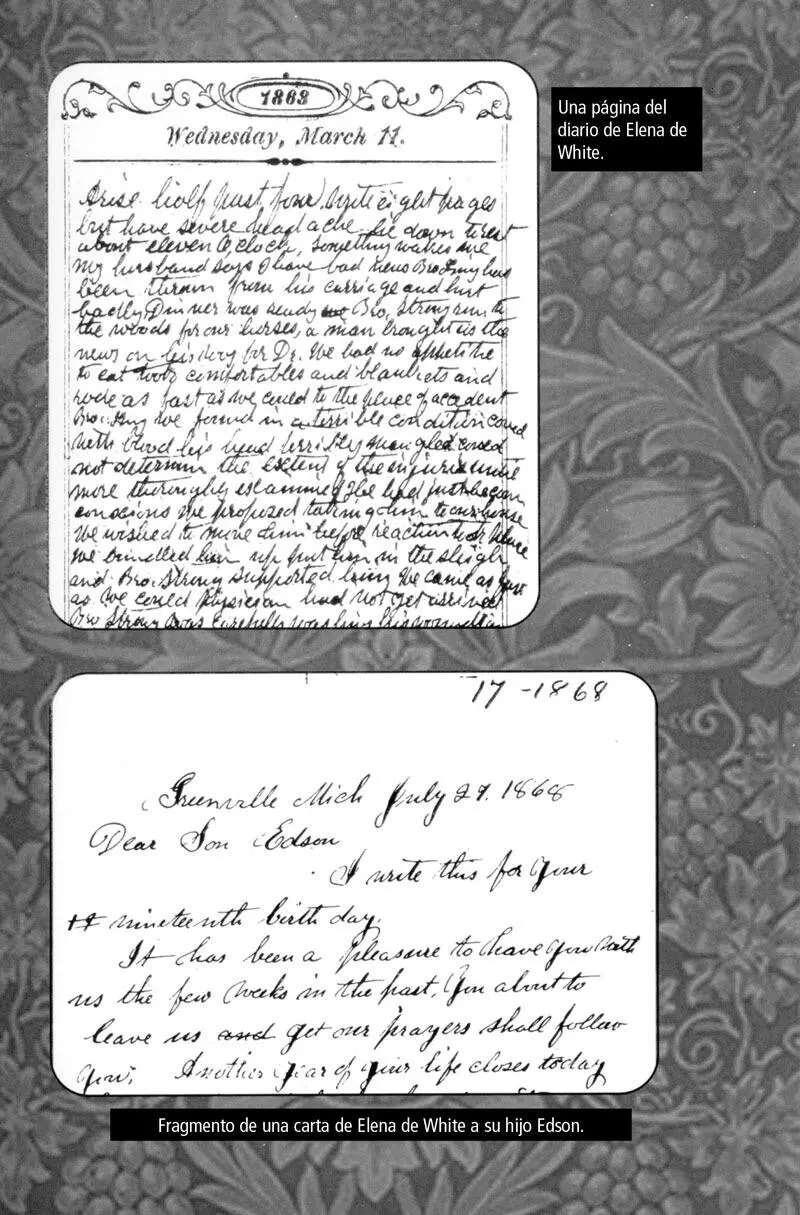 1863
Wednesday, March 11.
Arise half past four, write eight pages
but have severe head ache. lie down to rest
about eleven O,clock, Something wakes me
My husband says I have bad news Bro has
been thrown from his carriage and hurt
badly Dinner was ready Bro. Strong run to
the woods for our horses, a man brought us the
news on his way for Dr. We had no appetite
to eat took comfortables and blankets and
rode as fast as we could to the place of accident
Bro. we found in a terrible condition coverd
with blood his head terribly mangled could
not determin the extent of the injuries until
more thoroughly examined He had just began
concious We proposed taking him to our house
We wished to move him before reaction took place
We bundled him up put him in the sleigh
and Bro. Strong supported him We came as
as we could Physician had not yet arrived
Bro Strong was carefully washing his wounds
Una página del
diario de Elena de
White.
17 -1868
Greenville Mich July 27. 1868
Dear Son Edson
I write this for your
nineteenth birth day.
It has been a pleasure to have you with
us the few weeks in the past. You about to
leave us and yet our prayers shall follow
you. Another year of your life closes today
Fragmento de una carta de Elena de White a su hijo Edson.